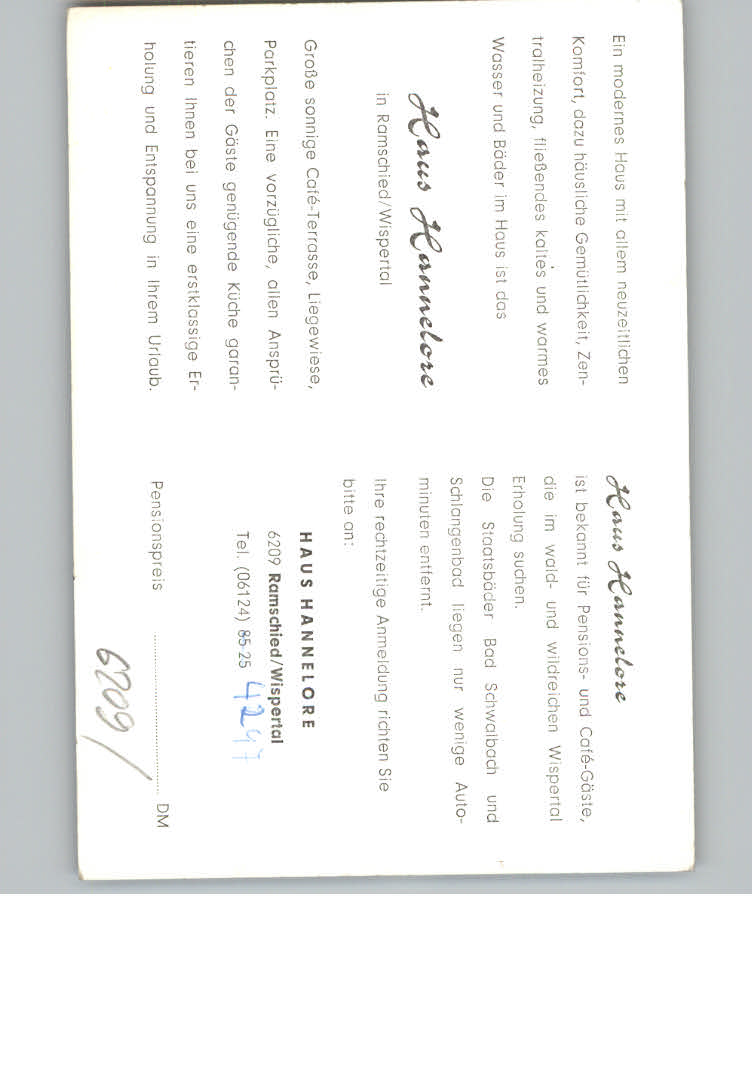 Ein modernes Haus mit allem neuzeitlichen
Komfort, dazu häusliche Gemütlichkeit, Zen-
tralheizung, fließendes kaltes und warmes
Wasser und Bäder im Haus ist das
Haus Hannelore
in Ramschied/Wispertal
Große sonnige Café-Terrasse, Liegewiese,
Parkplatz. Eine vorzügliche, allen Ansprü-
chen der Gäste genügende Küche garan-
tieren Ihnen bei uns eine erstklassige Er-
holung und Entspannung in Ihrem Urlaub.
Haus Hannelore
ist bekannt für Pensions- und Café-Gäste,
die im wald- und wildreichen Wispertal
Erholung suchen.
Die Staatsbäder Bad Schwalbach und
Schlangenbad liegen nur wenige Auto-
minuten entfernt.
Ihre rechtzeitige Anmeldung richten Sie
bitte an:
HAUS HANNELORE
6209 Ramschied/Wispertal
Tel. (06124) 85-25 4247
Pensionspreis .................... DM
6209/